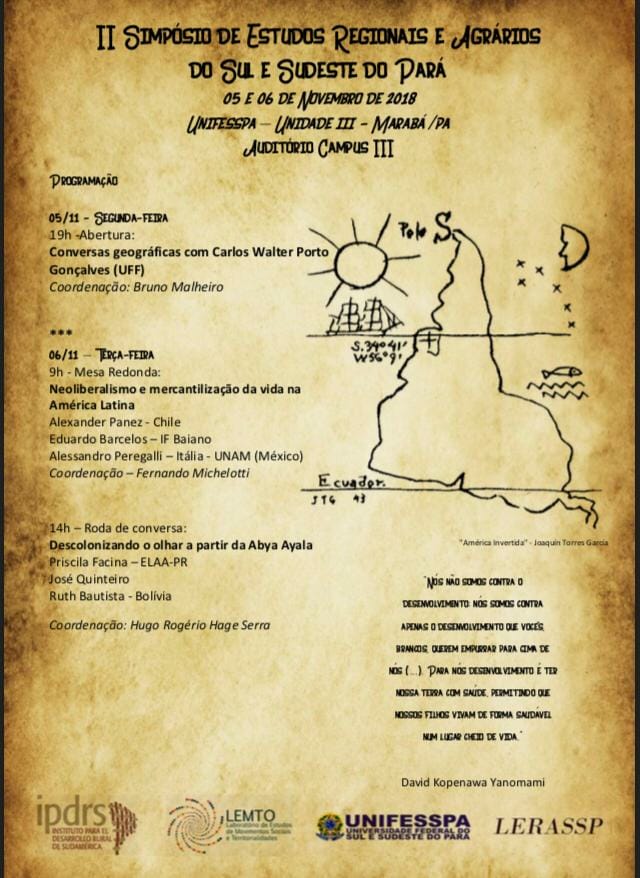 II Simpósio de Estudos Regionais e Agrários
do Sul e Sudeste do Pará
05 e 06 de Novembro de 2018
Unifesspa – Unidade III – Marabá/PA
Auditório Campus III
Programação
05/11 - Segunda-feira
19h -Abertura:
Conversas geográficas com Carlos Walter Porto
Gonçalves (UFF)
Coordenação: Bruno Malheiro
***
06/11 – Terça-feira
9h - Mesa Redonda:
Neoliberalismo e mercantilização da vida na
América Latina
Alexander Panez - Chile
Eduardo Barcelos – IF Baiano
Alessandro Peregalli – Itália - UNAM (México)
Coordenação – Fernando Michelotti
14h – Roda de conversa:
Descolonizando o olhar a partir da Abya Ayala
Priscila Facina – ELAA-PR
José Quinteiro
Ruth Bautista - Bolívia
Coordenação: Hugo Rogério Hage Serra
Polo S.
S.34º41'
W56º9'
Ecuador.
JTG 43
"América Invertida" - Joaquín Torres García
"Nós não somos contra o
desenvolvimento: nós somos contra
apenas o desenvolvimento que vocês,
brancos, querem empurrar para cima de
nós (...). Para nós desenvolvimento é ter
nossa terra com saúde, permitindo que
nossos filhos vivam de forma saudável
num lugar cheio de vida."
David Kopenawa Yanomami
ipdrs
INSTITUTO PARA EL
DESARROLLO RURAL
DE SUDAMÉRICA
LEMTO
Laboratório de Estudos
de Movimentos Sociais
e Territorialidades
UNIFESSPA
UNIVERSIDADE FEDERAL DO
SUL E SUDESTE DO PARÁ
LERASSP